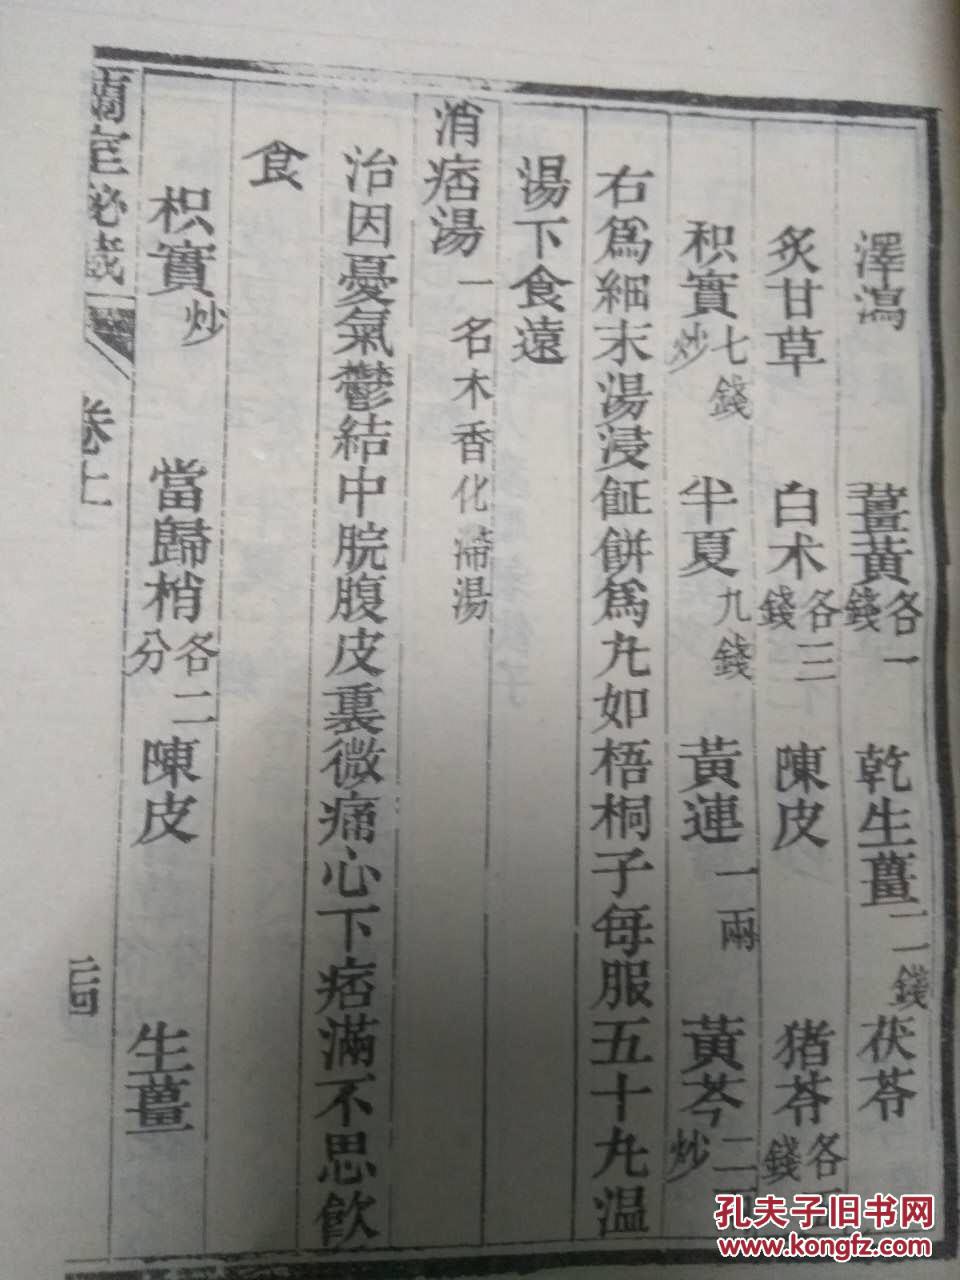 澤瀉 薑黃各一錢 乾生薑二錢 茯苓
炙甘草 白术各三錢 陳皮 猪苓各
枳實七錢炒 半夏九錢 黃連一兩 黃芩二兩炒
右爲細末湯浸䭔餅爲丸如梧桐子每服五十丸温
湯下食遠
消痞湯一名木香化滯湯
治因憂氣鬱結中脘腹皮裏微痛心下痞滿不思飲
食
枳實炒 當歸梢各二分 陳皮 生薑
蘭室祕藏 卷上 二四
孔夫子旧书网
www.kongfz.com